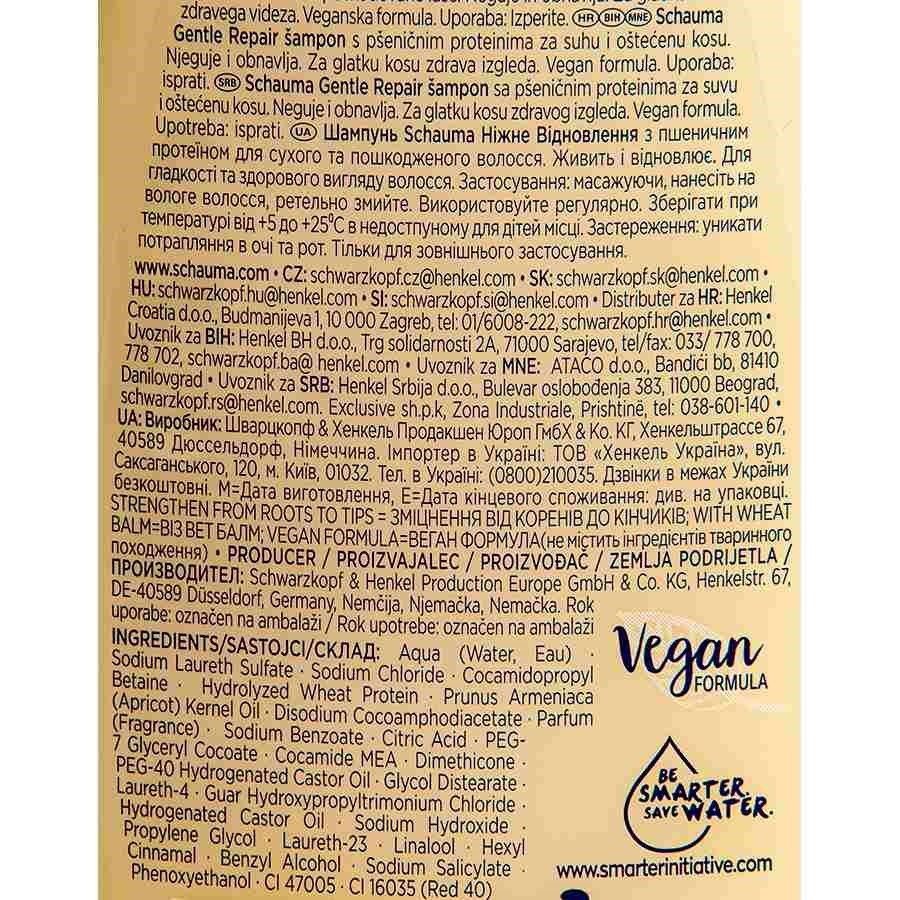 zdravega videza. Veganska formula. Uporaba: Izperite. HR BIH MNE Schauma
Gentle Repair šampon s pšeničnim proteinima za suhu i oštećenu kosu.
Njeguje i obnavlja. Za glatku kosu zdrava izgleda. Vegan formula. Uporaba:
isprati. SRB Schauma Gentle Repair šampon sa pšeničnim proteinima za suvu
i oštećenu kosu. Neguje i obnavlja. Za glatku kosu zdravog izgleda. Vegan formula.
Upotreba: isprati. UA Шампунь Schauma Ніжне Відновлення з пшеничним
протеїном для сухого та пошкодженого волосся. Живить і відновлює. Для
гладкості та здорового вигляду волосся. Застосування: масажуючи, нанесіть на
вологе волосся, ретельно змийте. Використовуйте регулярно. Зберігати при
температурі від +5 до +25⁰C в недоступному для дітей місці. Застереження: уникати
потрапляння в очі та рот. Тільки для зовнішнього застосування.
www.schauma.com • CZ: schwarzkopf.cz@henkel.com • SK: schwarzkopf.sk@henkel.com •
HU: schwarzkopf.hu@henkel.com • SI: schwarzkopf.si@henkel.com • Distributer za HR: Henkel
Croatia d.o.o., Budmanijeva 1, 10 000 Zagreb, tel: 01/6008-222, schwarzkopf.hr@henkel.com •
Uvoznik za BIH: Henkel BH d.o.o., Trg solidarnosti 2A, 71000 Sarajevo, tel/fax: 033/ 778 700,
778 702, schwarzkopf.ba@ henkel.com • Uvoznik za MNE: ATACO d.o.o., Bandići bb, 81410
Danilovgrad • Uvoznik za SRB: Henkel Srbija d.o.o., Bulevar oslobođenja 383, 11000 Beograd,
schwarzkopf.rs@henkel.com. Exclusive sh.p.k, Zona Industriale, Prishtinë, tel: 038-601-140 •
UA: Виробник: Шварцкопф & Хенкель Продакшен Юроп ГмбХ & Ко. КГ, Хенкельштрассе 67,
40589 Дюссельдорф, Німеччина. Імпортер в Україні: ТОВ «Хенкель Україна», вул.
Саксаганського, 120, м. Київ, 01032. Тел. в Україні: (0800)210035. Дзвінки в межах України
безкоштовні. M=Дата виготовлення, E=Дата кінцевого споживання: див. на упаковці.
STRENGTHEN FROM ROOTS TO TIPS = ЗМІЦНЕННЯ ВІД КОРЕНІВ ДО КІНЧИКІВ; WITH WHEAT
BALM=ВІЗ ВЕТ БАЛМ; VEGAN FORMULA=ВЕГАН ФОРМУЛА(не містить інгредієнтів тваринного
походження) • PRODUCER / PROIZVAJALEC / PROIZVOĐAČ / ZEMLJA PODRIJETLA /
ПРОИЗВОДИТЕЛ: Schwarzkopf & Henkel Production Europe GmbH & Co. KG, Henkelstr. 67,
DE-40589 Düsseldorf, Germany, Nemčija, Njemačka, Nemačka. Rok
uporabe: označen na ambalaži / Rok upotrebe: označen na ambalaži
INGREDIENTS/SASTOJCI/СКЛАД: Aqua (Water, Eau) ·
Sodium Laureth Sulfate · Sodium Chloride · Cocamidopropyl
Betaine · Hydrolyzed Wheat Protein · Prunus Armeniaca
(Apricot) Kernel Oil · Disodium Cocoamphodiacetate · Parfum
(Fragrance) · Sodium Benzoate · Citric Acid · PEG-
7 Glyceryl Cocoate · Cocamide MEA · Dimethicone ·
PEG-40 Hydrogenated Castor Oil · Glycol Distearate ·
Laureth-4 · Guar Hydroxypropyltrimonium Chloride ·
Hydrogenated Castor Oil · Sodium Hydroxide ·
Propylene Glycol · Laureth-23 · Linalool · Hexyl
Cinnamal · Benzyl Alcohol · Sodium Salicylate ·
Phenoxyethanol · CI 47005 · CI 16035 (Red 40)
Vegan
FORMULA
BE
SMARTER.
SAVE WATER.
www.smarterinitiative.com